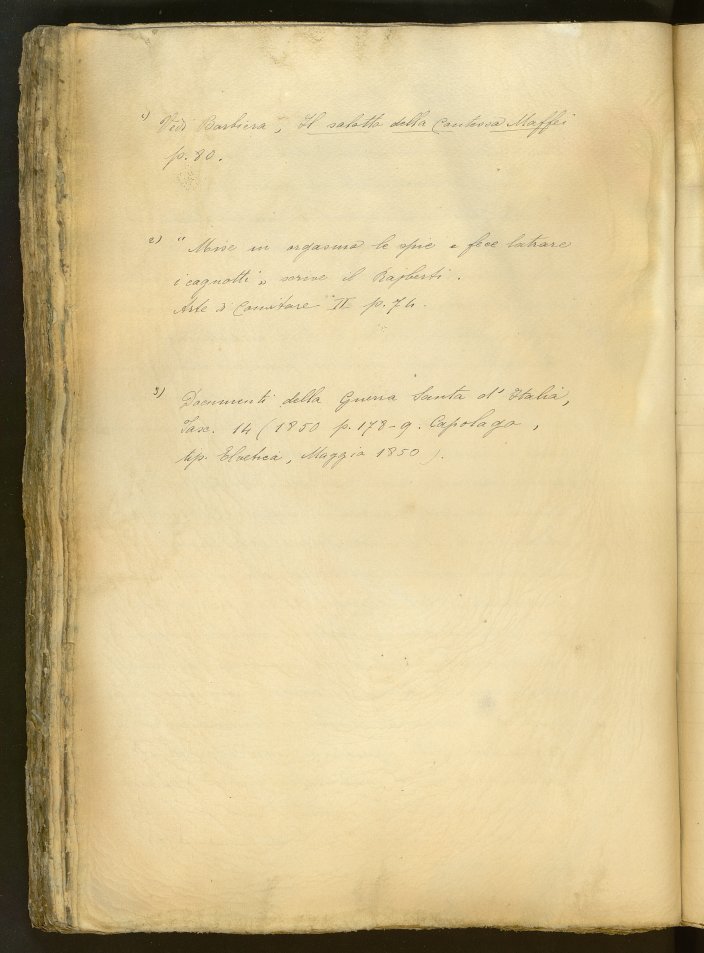 1) Vedi Barbiera, Il salotto della Contessa Maffei
p. 80.
2) "Mise in orgasmo le spie e fece latrare
i cagnotti" scrive il Rajberti.
Arte di Convitare II p. 74.
3) Documenti della Guerra Santa d'Italia,
Fasc. 14 (1850 p. 178-9. Capolago,
tip. Elvetica, Maggio 1850).